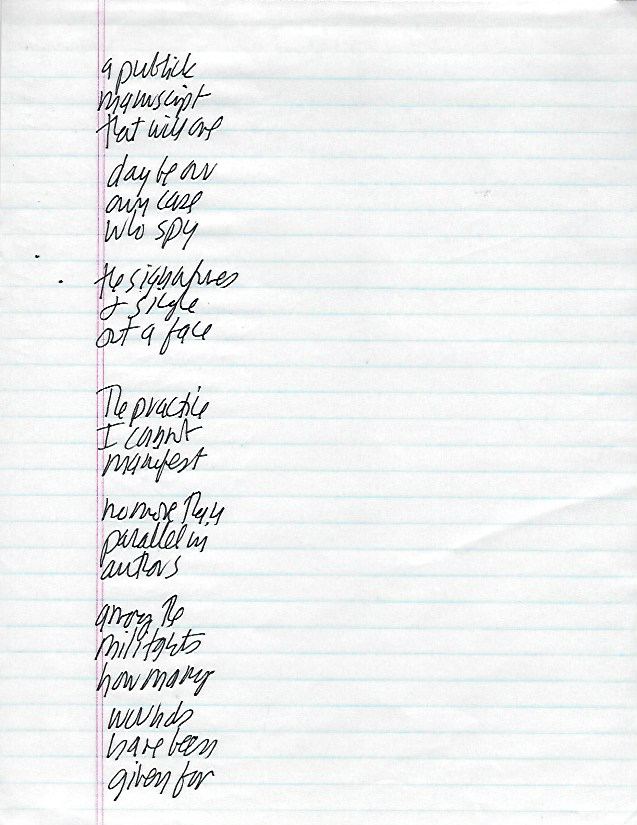 a publick
manuscript
that will one
day be our
own case
who spy
the signatures
& single
out a face
The practice
I cannot
manifest
no more than
parallel in
authors
among the
militants
how many
wounds
have been
given for